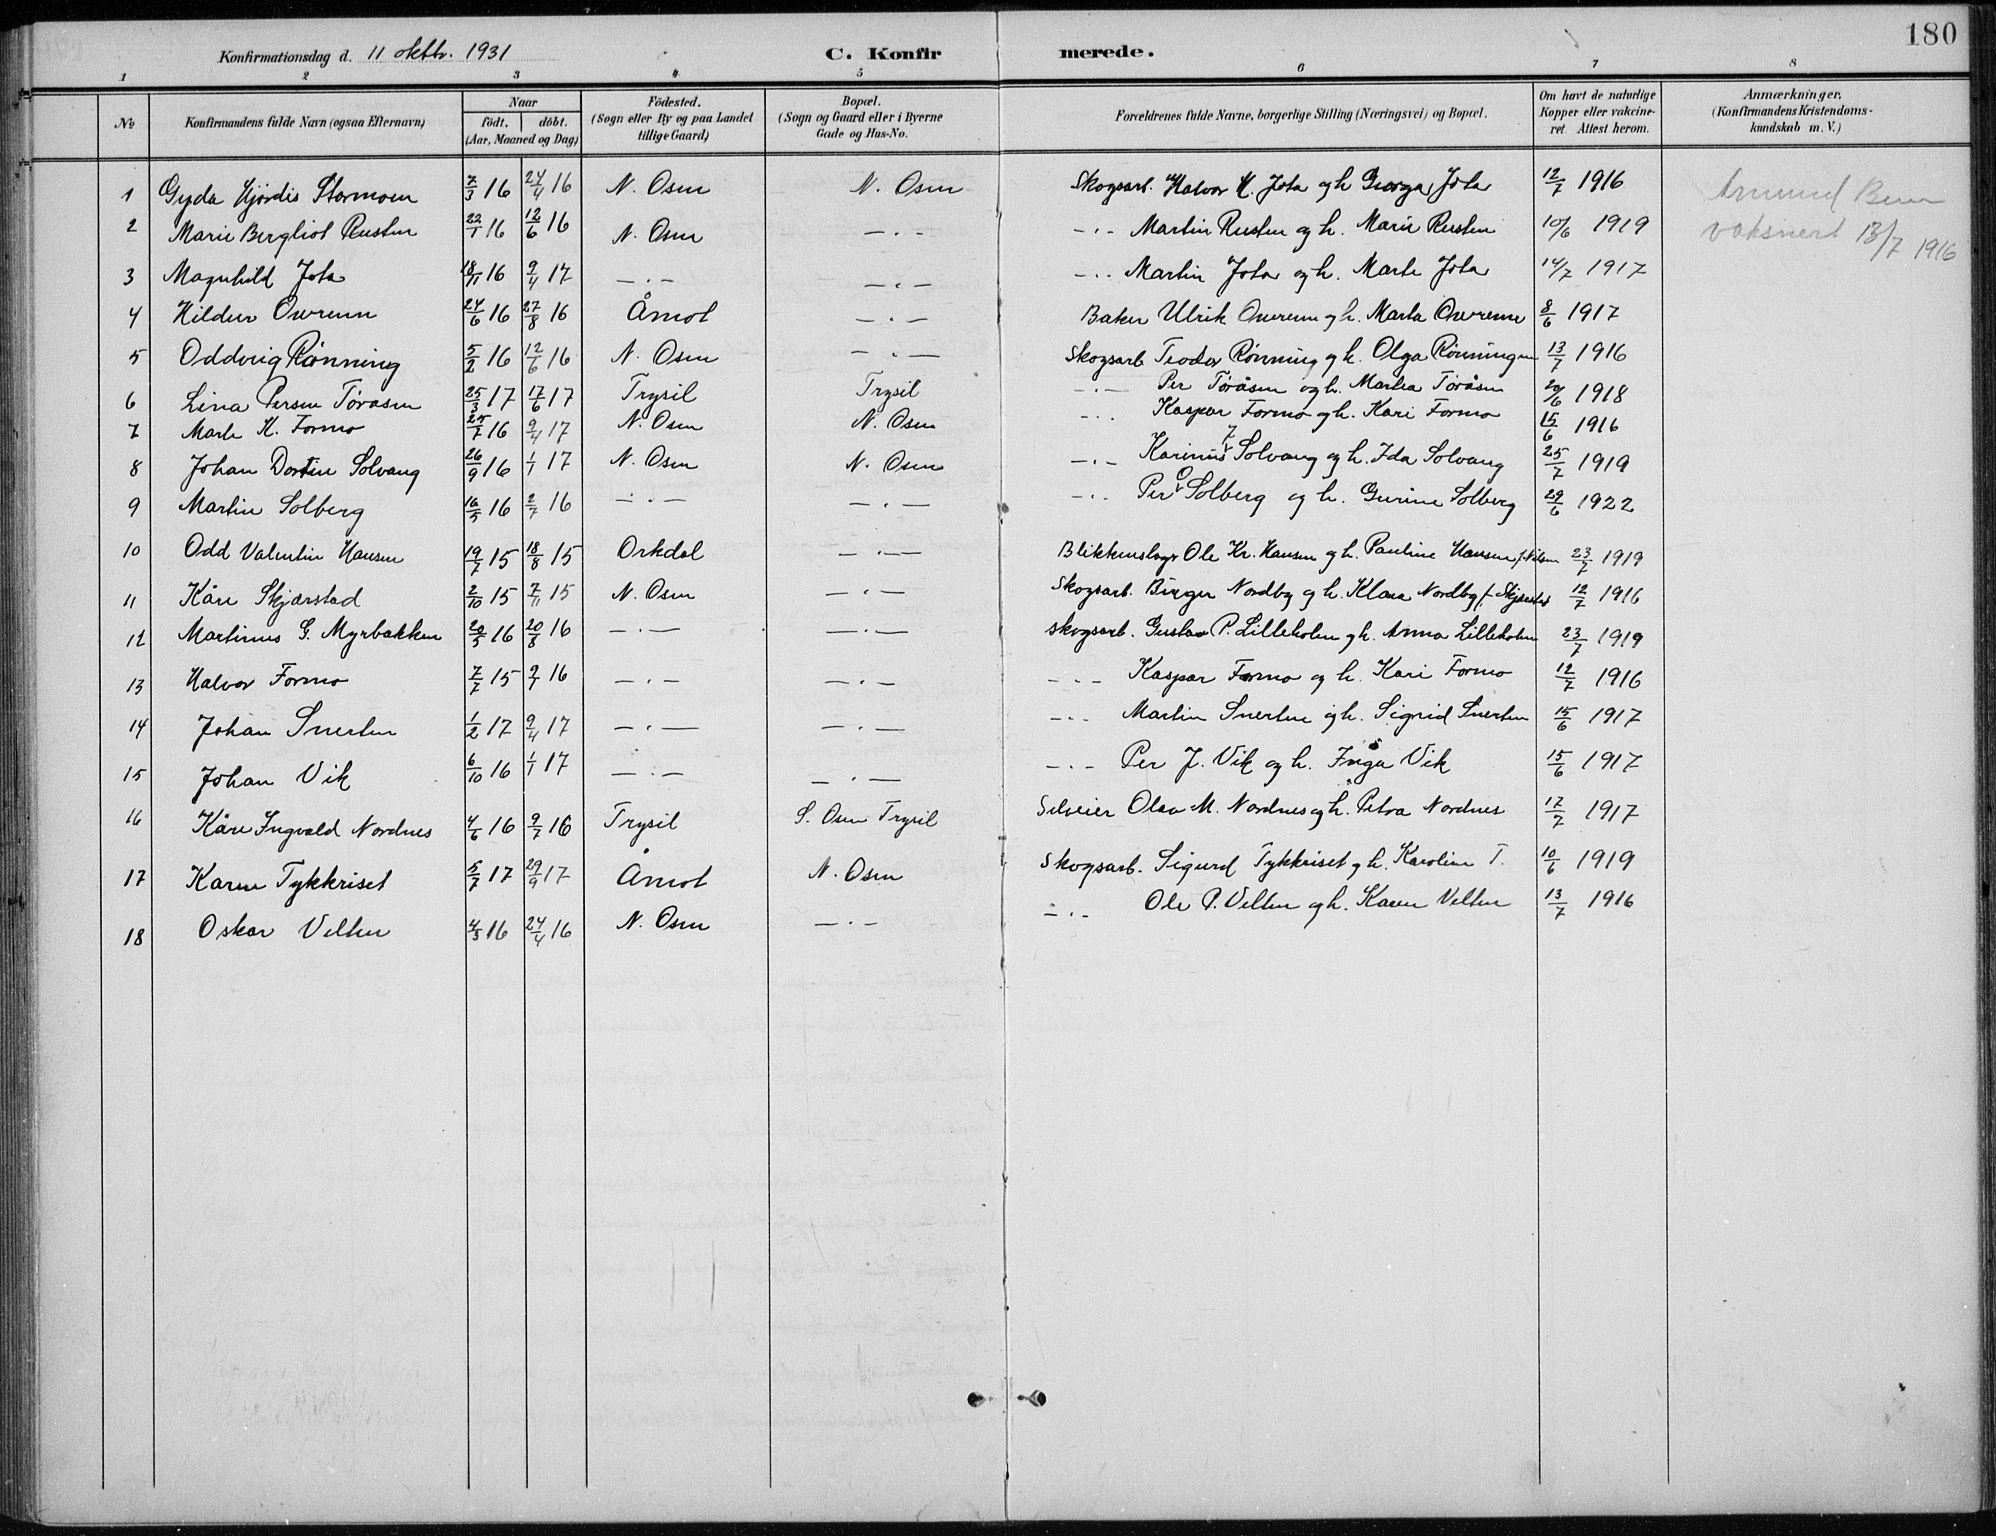 180
Konfirmationsdag d. 11 oktbr. 1931 C. Konfirmerede.
1 2 3 4 5 6 7 8
No Konfirmandens fulde Navn (ogsaa Efternavn) Naar födt. döbt. (Aar, Maaned og Dag) Födested. (Sogn eller By og paa Landet tillige Gaard) Bopæl. (Sogn og Gaard eller i Byerne Gade og Hus-No. Forældrenes fulde Navne, borgerlige Stilling (Næringsvei) og Bopæl. Om havt de naturlige Kopper eller vakcineret. Attest herom. Anmærkninger, (Konfirmandens Kristendomskundskab m. V.)
1 Gyda Hjördis Stormoen 7/3 16 24/4 16 N. Osen N. Osen Skogsarb. Halvor H. Jota og h Jota 12/7 1916
2 Marie Bergliot Rusten 22/1 16 12/6 16 N. Osen — . — — . — Martin Rusten og h. Marie Rusten 10/6 1919 vaksinert 13/7 1916
3 Magnhild Jota 18/11 16 9/4 17 — . — — . — — . — Martin Jota og h. Marte Jota 14/7 1917
4 Hildur Owrenn 24/6 16 27/8 16 Åmot — . — Baker Ulrik Owrenn og h. Marta Owrenn 8/6 1917
5 Oddvig Rønning 5/2 16 12/6 16 N. Osen — . — Skogsarb Teodor Rønning og h. Olga Rønningen 13/7 1916
6 Lina Persen Töråsen 25/3 17 17/6 17 Trysil Trysil — . — Per Töråsen og h. Martea Töråsen 20/6 1918
7 Marte K. Formo 25/7 16 9/4 17 N. Osen N. Osen — . — Kaspar Formo og h. Kari Formo 15/6 1916
8 Johan Solvang 26/9 16 1/1 17 N. Osen N. Osen — . — Karinus J Solvang og h. Ida Solvang 25/7 1919
9 Martin Solberg 16/5 16 2/7 16 — . — — . — — . — Per O Solberg og h. Gurine Solberg 29/6 1922
10 Odd Valentin Hansen 19/7 15 18/8 15 Orkdal — . — Blikkenslagr Ole Kr. Hansen og h. Pauline Hansen f. Nilsen 23/7 1919
11 Kåre Skjærstad 2/10 15 7/11 15 N. Osen — . — Skogsarb. Birger Nordby og h. Klara Nordby f. Skjærstad 12/7 1916
12 Martinus G. Myrbakken 20/5 16 20/8 16 — . — — . — skogsarb. Gustav P. Lilleholen og h. Anna Lilleholen 23/7 1919
13 Halvor Formo 7/7 15 9/7 16 — . — — . — — . — Kaspar Formo og h. Kari Formo 12/7 1916
14 Johan Snerten 1/2 17 9/4 17 — . — — . — — . — Martin Snerten og h. Sigrid Snerten 15/6 1917
15 Johan Vik 6/10 16 1/1 17 — . — — . — — . — Per J. Vik og h. Inga Vik 15/6 1917
16 Kåre Ingvald Nordnes 4/6 16 9/7 16 Trysil S. Osen Trysil Olav M. Nordnes og h. Petra Nordnes 17/7 1917
17 Karen Tykkriset 5/7 17 29/9 17 Åmot N. Osen Skogsarb. Sigurd Tykkriset og h. Karoline T. 10/6 1919
18 Oskar Velten 4/3 16 24/4 16 N. Osen — . — — . — Ole P. Velten og h. Karen Velten 13/7 1916